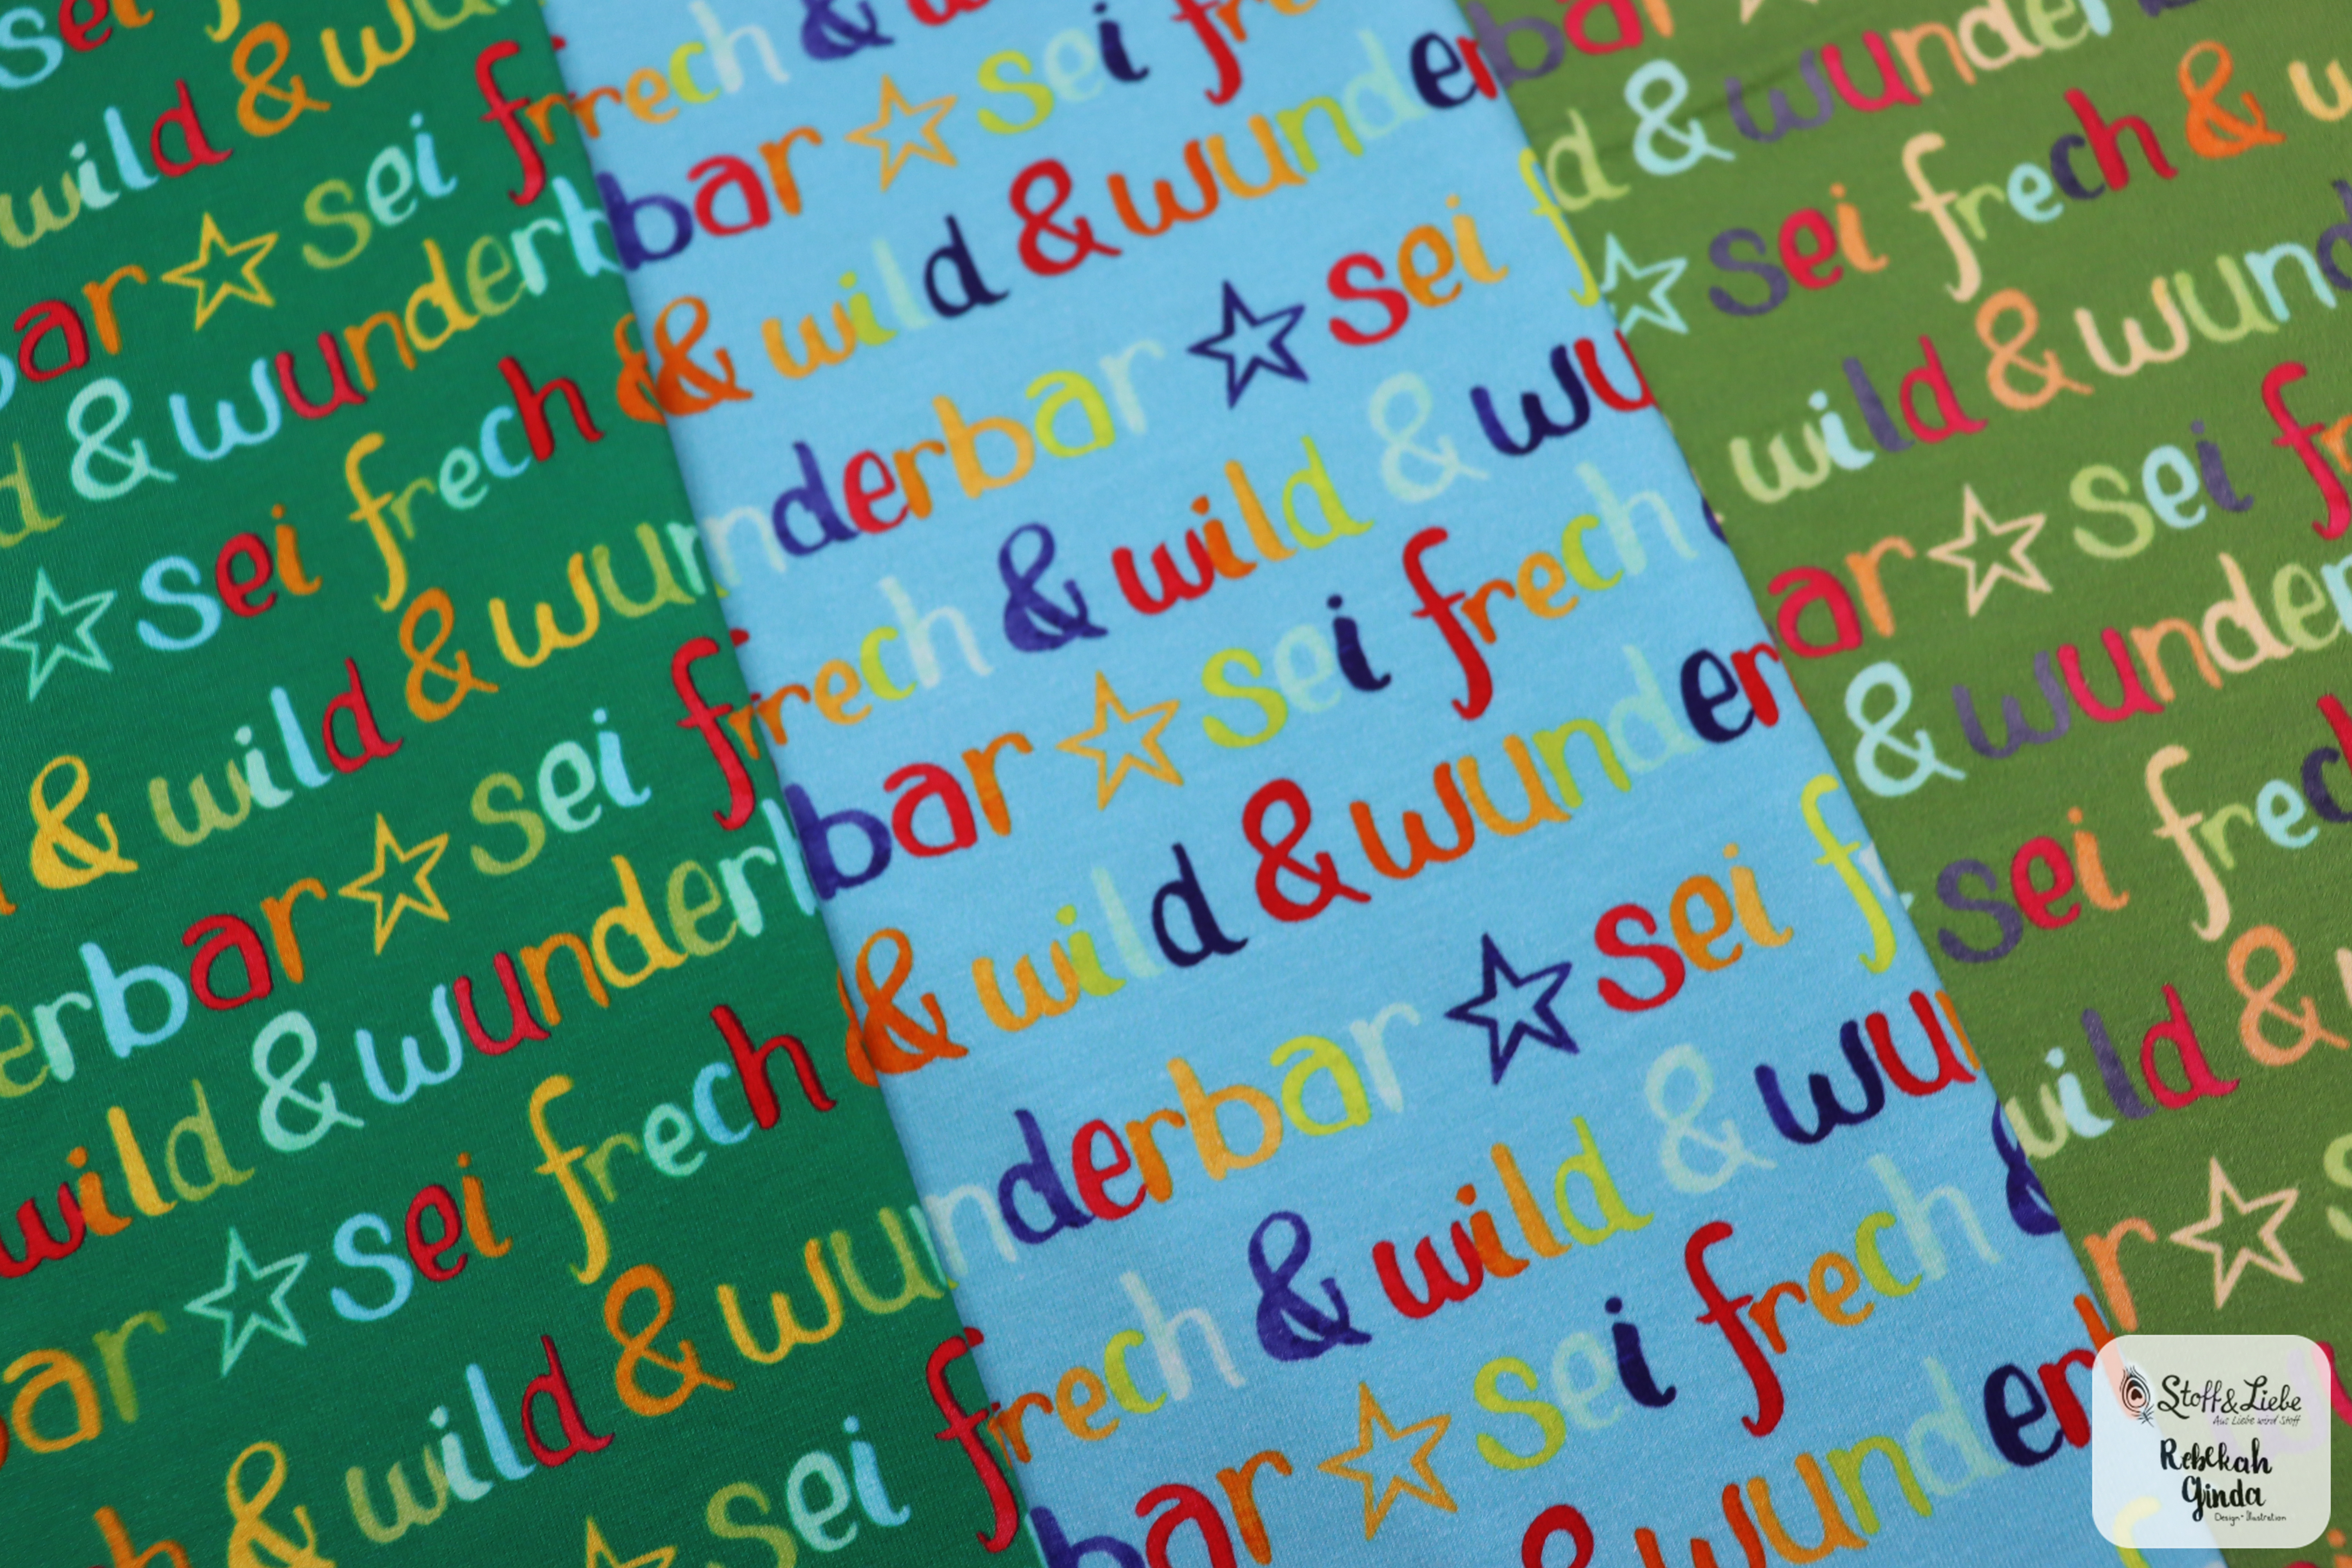 sei
wild & wun
bar ☆ sei fr
d & wunderb
☆ sei frech &
& wild & wun
erbar ☆ sei fr
wild & wunderb
ar ☆ sei frech &
& wild & wun
h & sei f
frech &
bar ☆ sei fr
& wild & wunder
nderbar ☆ sei f
frech & wild & wu
bar ☆ sei frech
& wild & wunder
nderbar ☆ sei f
frech & wild & wu
bar ☆ sei frech &
& wunder
bar
d & wunder
☆ sei frech & w
wild & wund
ar ☆ sei fr
& wunder
sei frech
wild &
r ☆ s
Stoff & Liebe
Aus Liebe wird Stoff
Rebekah
Ginda
Design • Illustration